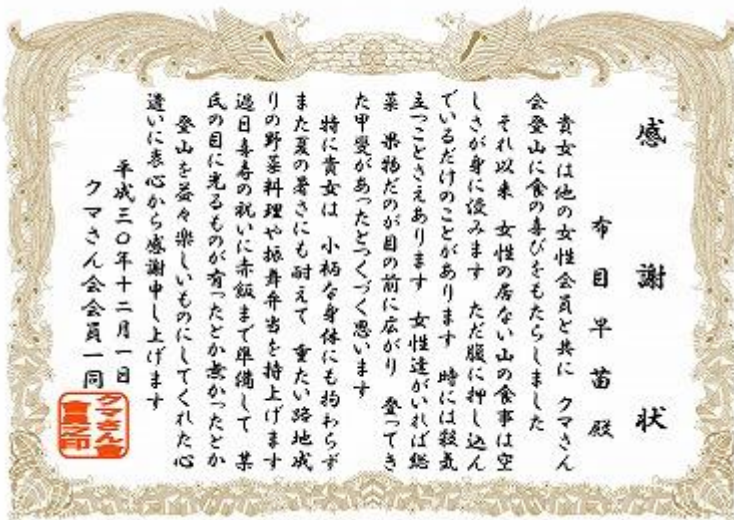 感謝状
布目早苗殿
貴女は他の女性会員と共に クマさん
会登山に食の喜びをもたらしました
それ以来 女性の居ない山の食事は空
しさが身に滲みます ただ腹に押し込ん
でいるだけのことがあります 時には殺気
立つことさえあります 女性達がいれば総
菜 果物だのが目の前に広がり 登ってき
た甲斐があったとつくづく思います
特に貴女は 小柄な身体にも拘わらず
また夏の暑さにも耐えて 重たい路地成
りの野菜料理や振舞弁当を持上げます
過日喜寿の祝いに赤飯まで準備して 某
氏の目に光るものが有ったとか無かったとか
登山を益々楽しいものにしてくれた心
遣いに衷心から感謝申し上げます
平成三〇年十二月一日
クマさん会会員一同
クマさん會
會員之印